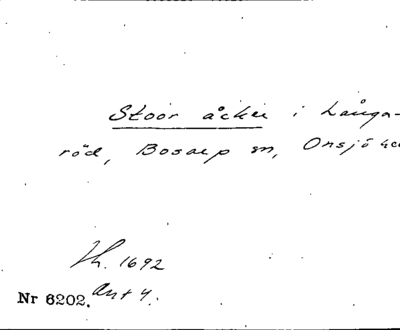 Stoor åcker i Långa-
röd, Bosarp sn, Onsjö
Jh. 1692
Nr 6202. Ant 4.